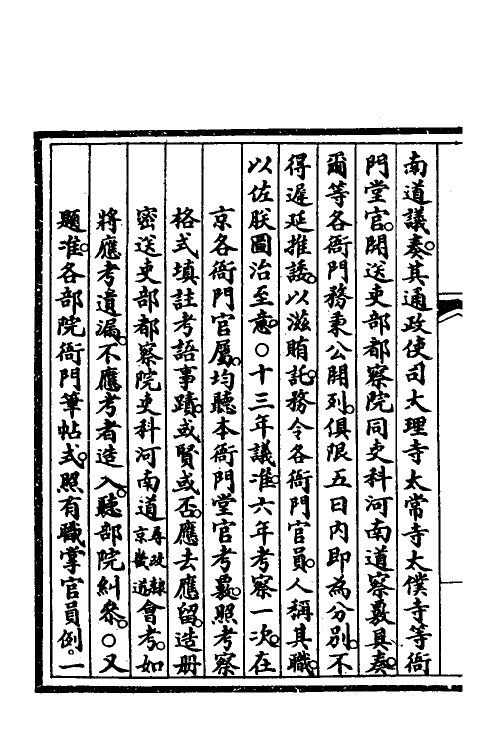 南道議奏其通政使司大理寺太常寺太僕寺等衙
門堂官開送吏部都察院同吏科河南道察覈具奏
爾等各衙門務秉公開列俱限五日内即為分別不
得遲延推諉以滋賄託務令各衙門官員人稱其職
以佐朕圖治至意○十三年議准六年考察一次在
京各衙門官屬均聽本衙門堂官考覈照考察
格式填註考語事蹟或賢或否應去應留造册
密送吏部都察院吏科河南道尋改隸京畿道會考如
將應考遺漏不應考者造入聽部院糾參○又
題准各部院衙門筆帖式照有職掌官員例一